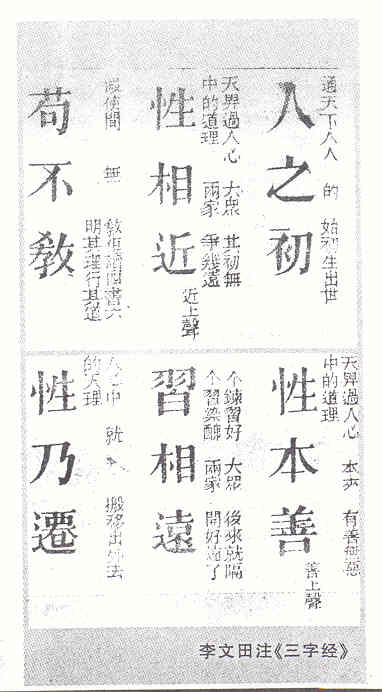 人之初
通天下人人 的 始初生出世
性相近
天畀過人心 大眾 其初無
中的道理 兩家 爭幾遠
近上聲
苟不敎
假使間 無
明其理行其
性本善
天畀過人心 本來 有善無惡
中的道理
善上聲
習相遠
个練習好 大眾 後來就隔
个習染醜 兩家 開好遠了
性乃遷
中 就 搬移出外去
的天理
李文田注《三字经》